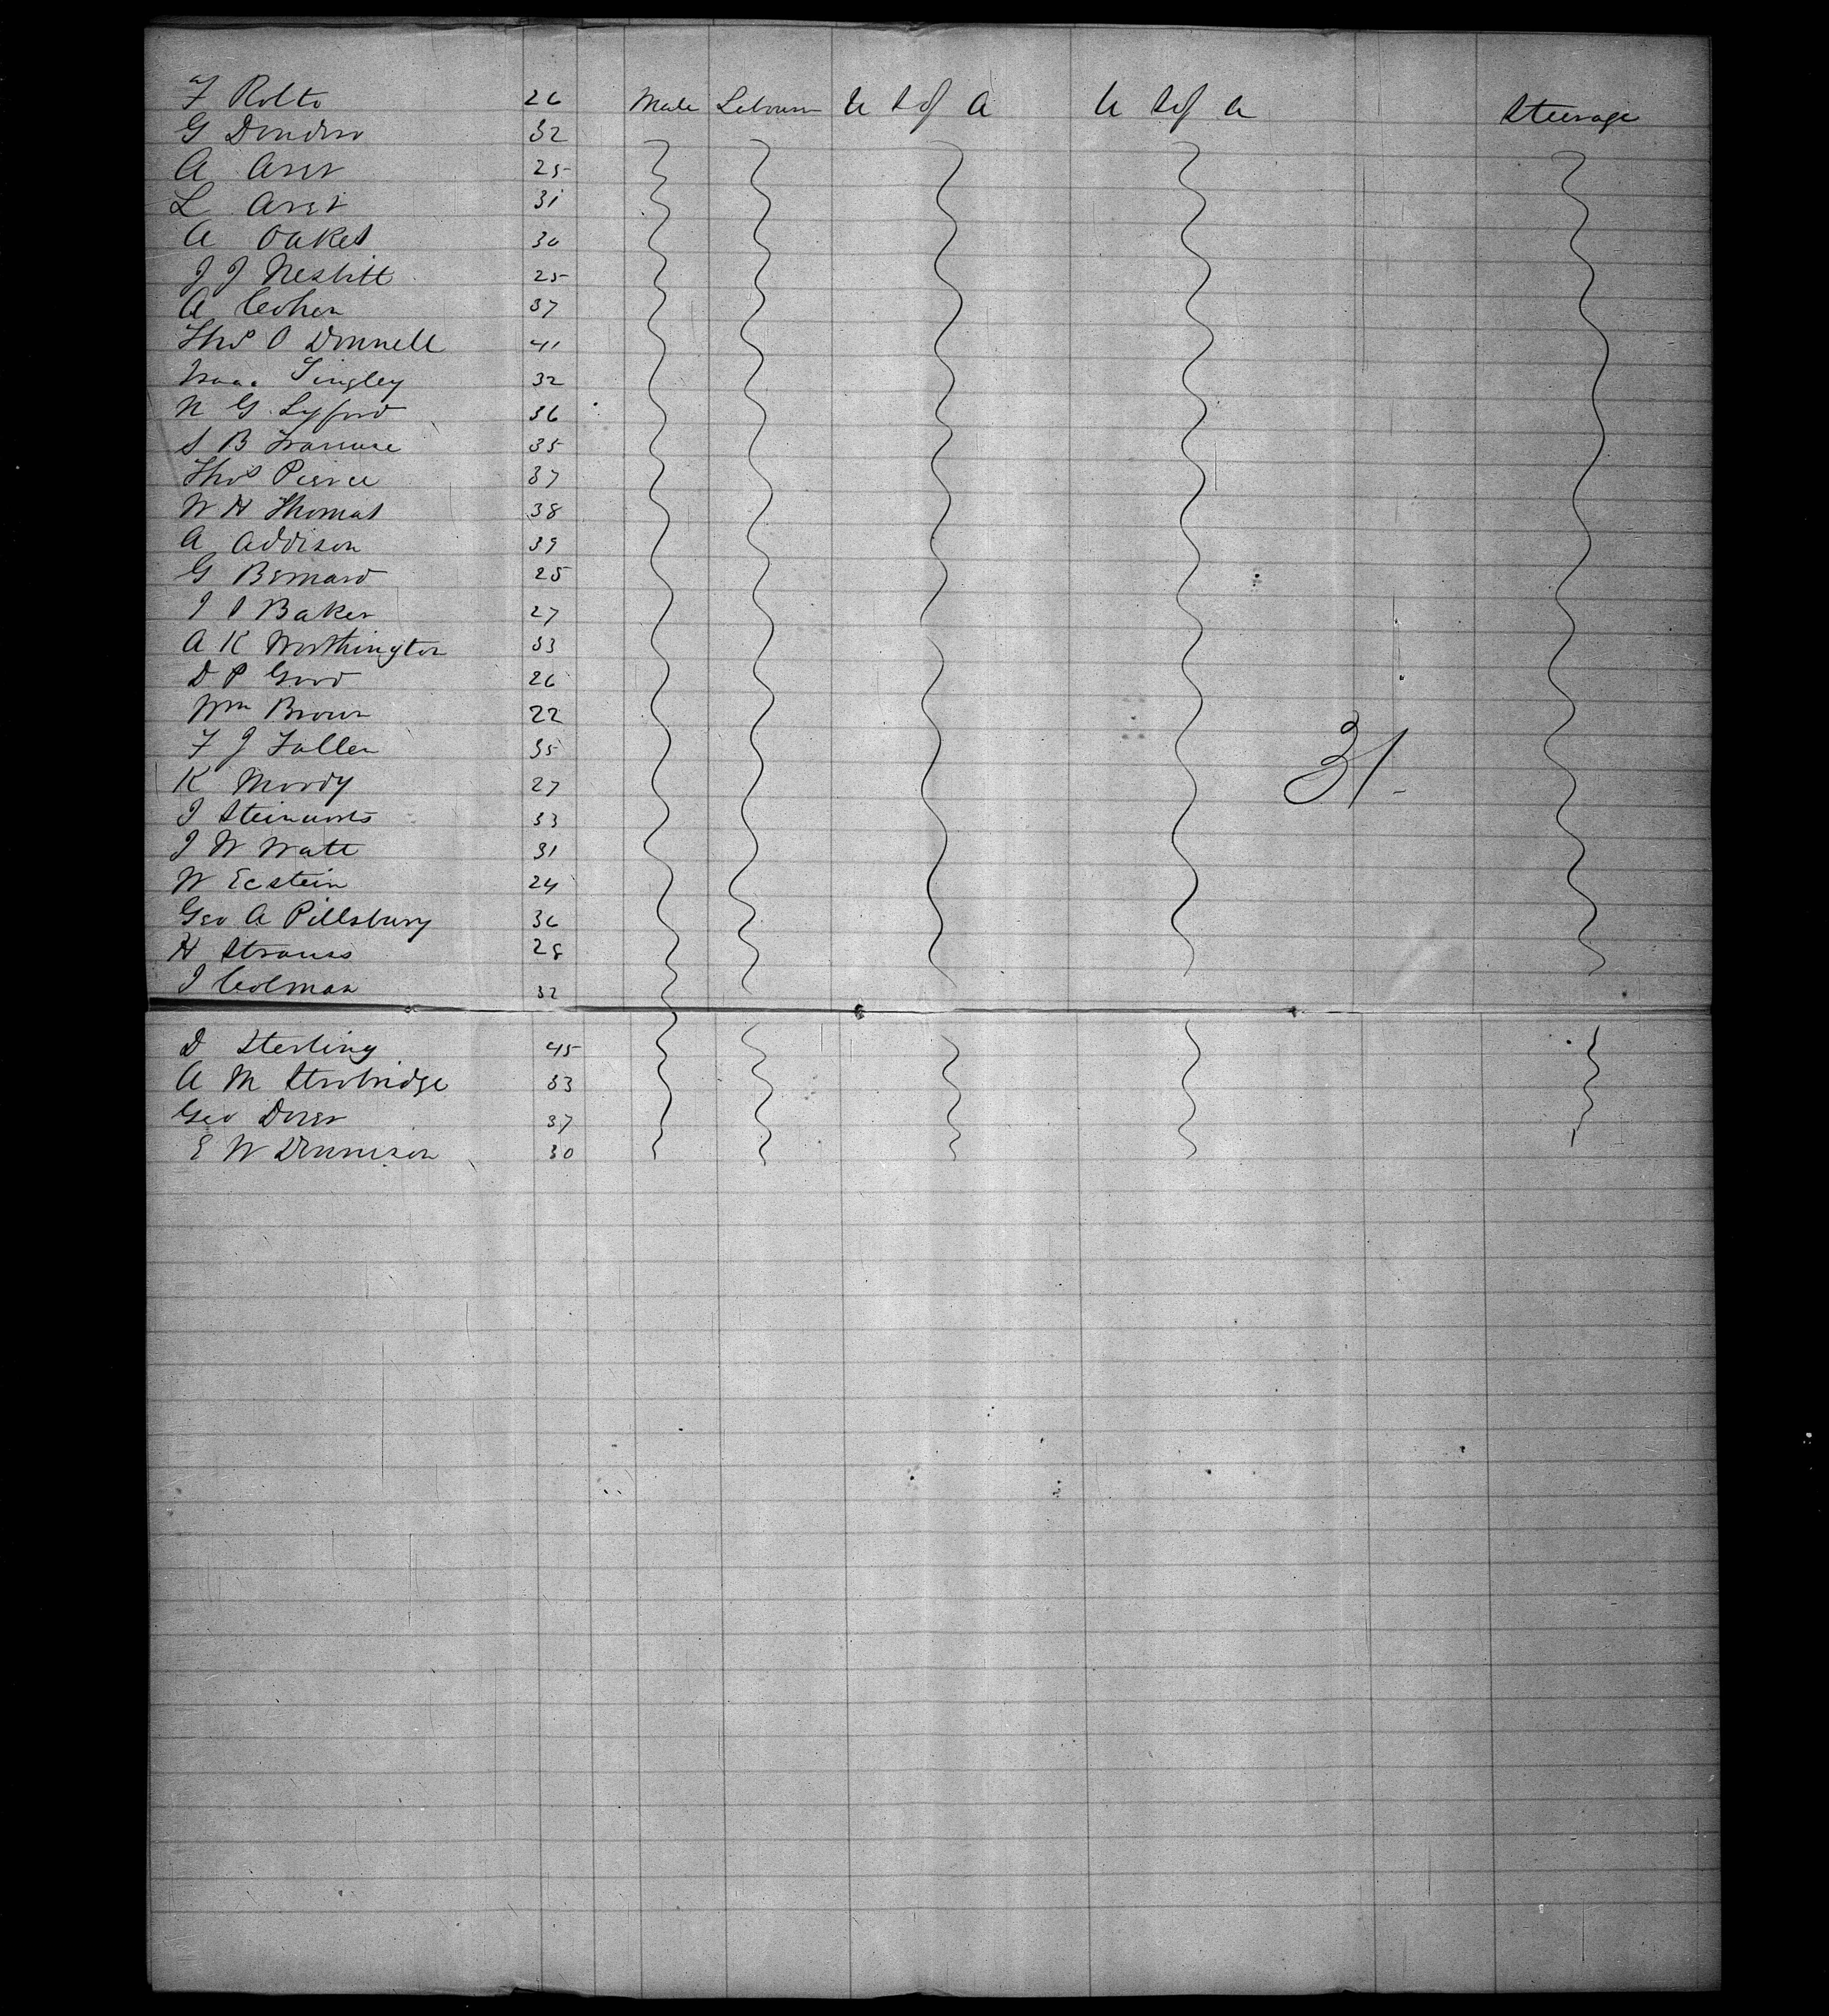 F Rolto 26 Male Labourer U S of A U S of A Steerage
G Dondero 32
A Arer 25
L Arer 31
A Oakes 30
J J Nesbitt 25
A Cohen 37
Thos O Donnell 41
Isaac Tingley 32
N G Lyford 36
S B 35
Thos Pierce 37
W H Thomas 38
A Addison 39
G Bernard 25
J P Baker 27
A K Worthington 33
D P Good 26
Wm Brown 22
F J Fallen 35
K Moody 27
31
J 33
J W Watt 31
W Ecstein 24
Geo A Pillsbury 36
H Strauss 28
J Colman 32
D Sterling 45
A M Strobridge 33
Geo Dorer 37
E W Dennison 30